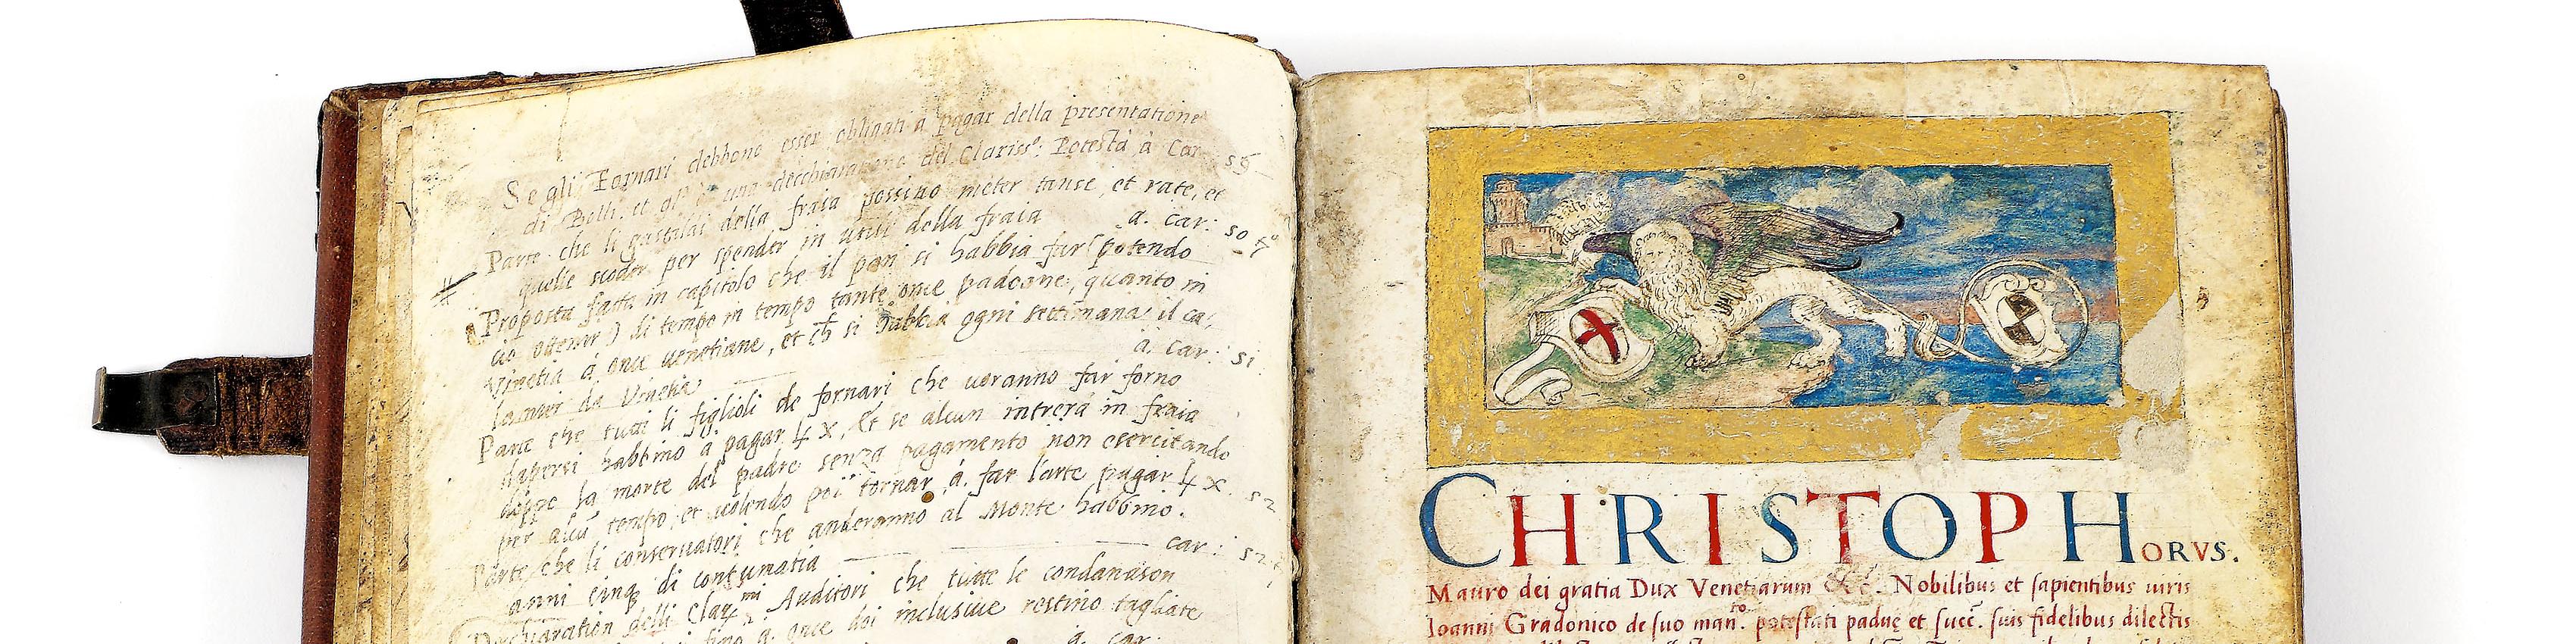 Se gli Fornari debbono esser obligati à pagar della presentatione
di Bolli. et gl' è una decchiaratione del Clariss.º Potestà à Car 55
Parte che li gastaldi della fraia possino meter tanse, et rate, et
quelle scoder per spender in utili della fraia a. car: 50
Proposta fatta in capitolo che il pan si habbia far (potendo
cio ottenir) di tempo in tempo tante once padoane, quanto in
Vinetia à once venetiane, et si habbia ogni settimana il ca,
lamier da Vinetia a. car: 51
Parte che tutti li figlioli de fornari che voranno far forno
dapersi habbino à pagar, et se alcun intrerà in fraia
doppo la morte del padre senza pagamento non esercitando
per alcũ tempo, et volendo poi tornar à far l'arte pagar 52
Parte che li conservatori che anderanno al Monte habbino.
anni cinq3 di contumatia car: 52
Dechiaration delli Clar.mi Auditori che tutte le condanason
fino a. once doi inclusive restino tagliate
a. car.
CHRISTOPHORVS.
Mauro dei gratia Dux Venetiarum &c. Nobilibus et sapientibus uiris
Ioanni Gradonico de suo man.to potestati paduę et succ. suis fidelibus dilectis